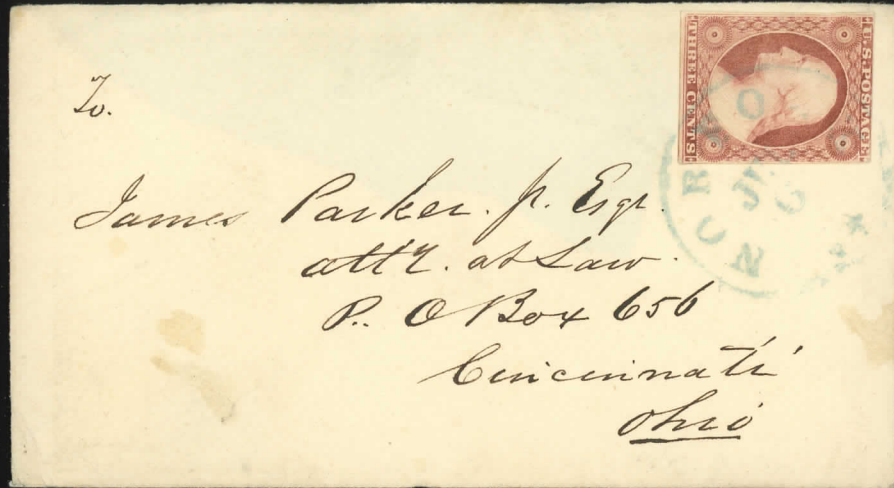 U.S. POSTAGE
THREE CENTS
To.
James Parker. Jr. Esqr.
att'y. at Law.
P. O Box 656
Cincinnati
Ohio